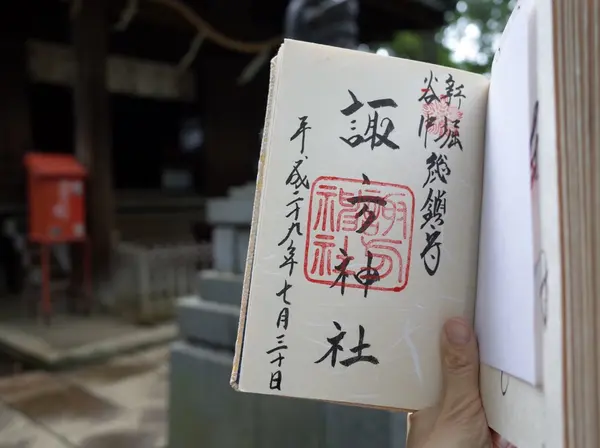 新堀
谷中
総鎮守
諏方神社
平成二十九年七月三十日